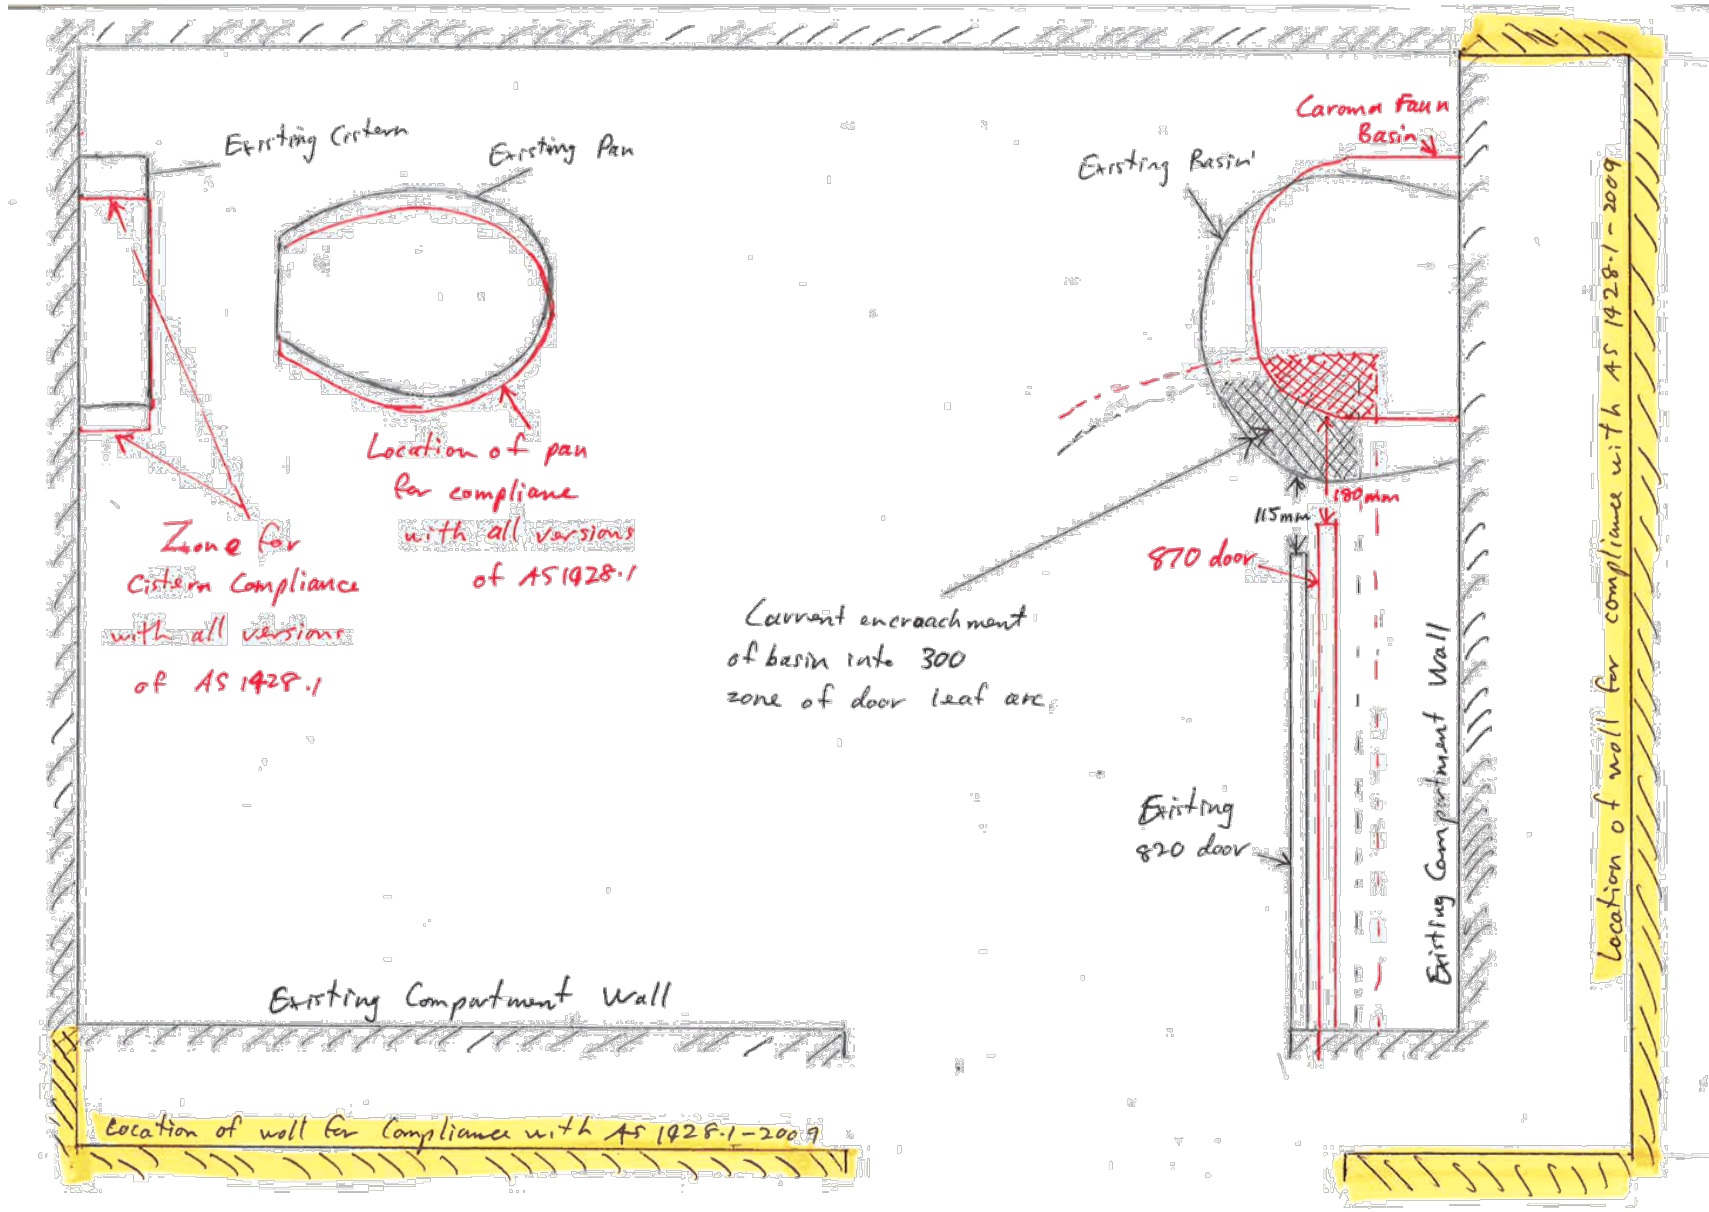 Existing Cistern
Existing Pan
Existing Basin
Caroma Faun
Basin
Location of pan
for compliane
with all versions
of AS1428.1
Zone for
Cistern Compliance
with all versions
of AS 1428.1
115mm
180mm
870 door
Current encroachment
of basin into 300
zone of door leaf arc
Existing
820 door
Existing Compartment Wall
Existing Compartment Wall
Location of wall for compliance with AS 1428.1-2009
Location of wall for Compliance with AS 1428.1-2009